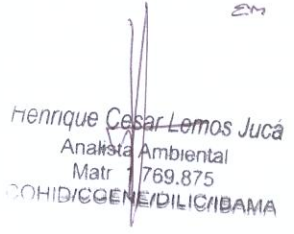 EM
Henrique Cesar Lemos Jucá
Analista Ambiental
Matr 1 769.875
COHID/CGENE/DILIC/IBAMA